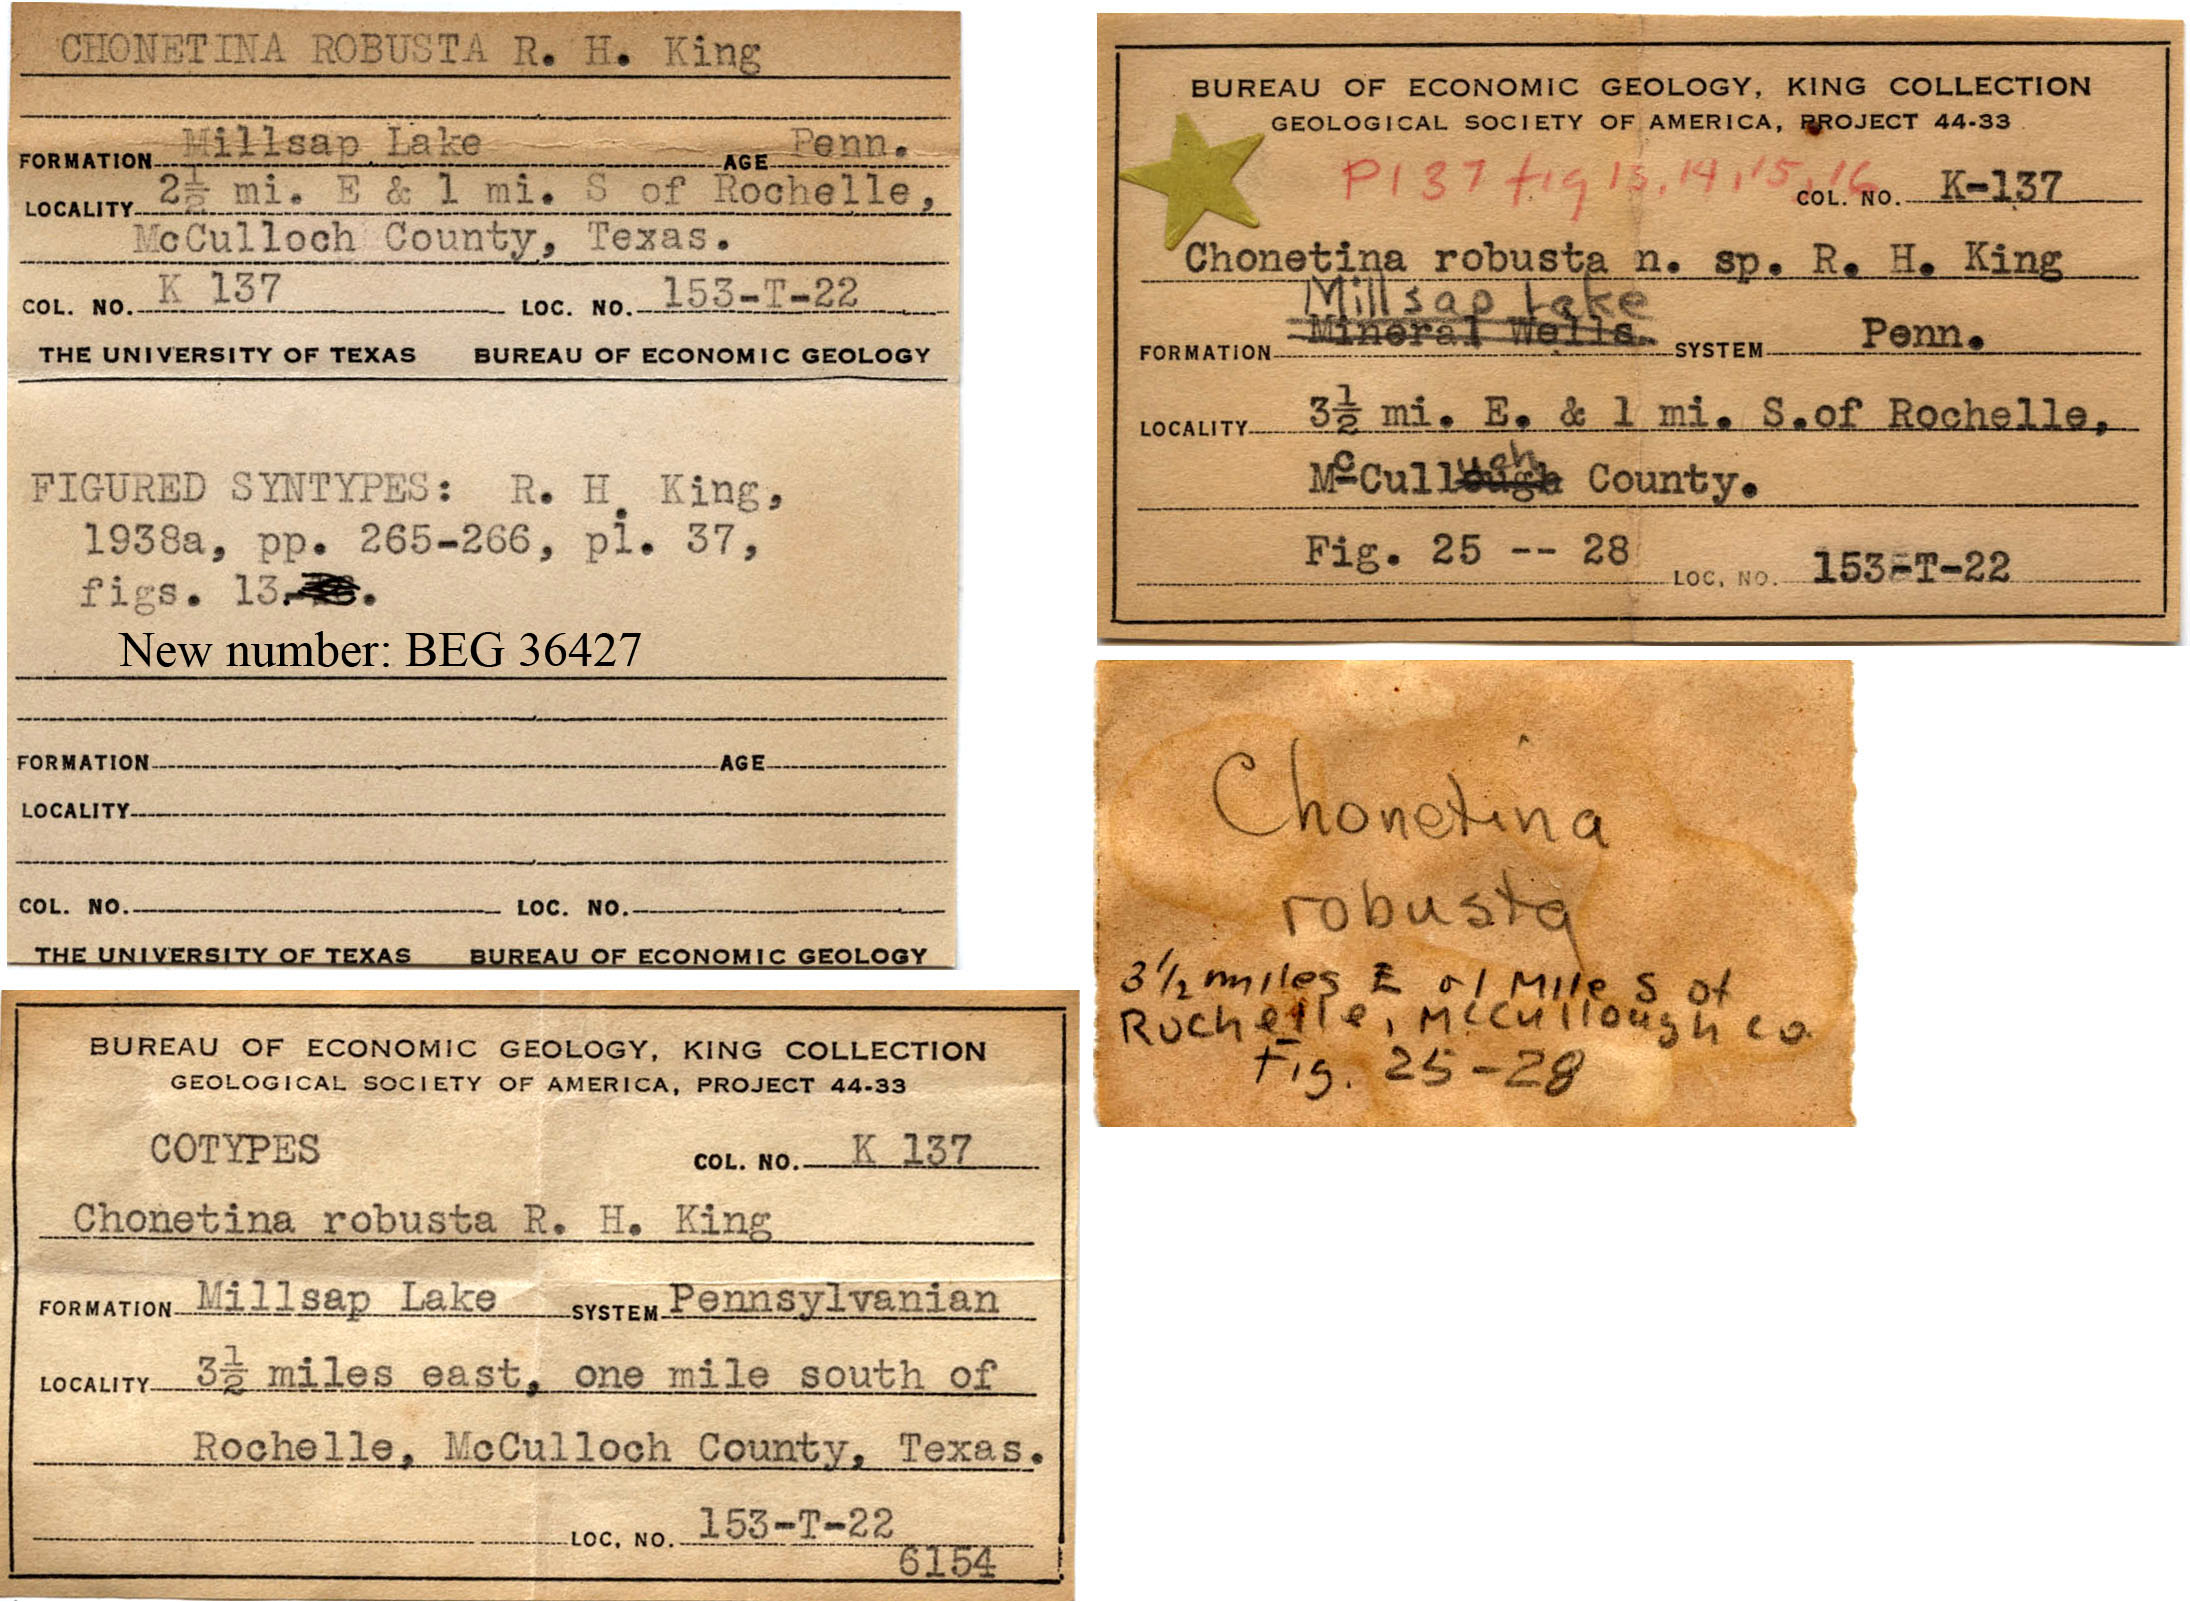 CHONETINA ROBUSTA R. H. King
FORMATION Millsap Lake AGE Penn.
LOCALITY 2½ mi. E & 1 mi. S of Rochelle,
McCulloch County, Texas.
COL. NO. K 137 LOC. NO. 153-T-22
THE UNIVERSITY OF TEXAS BUREAU OF ECONOMIC GEOLOGY
FIGURED SYNTYPES: R. H. King,
1938a, pp. 265-266, pl. 37,
figs. 13.
New number: BEG 36427
FORMATION AGE
LOCALITY
COL. NO. LOC. NO.
THE UNIVERSITY OF TEXAS BUREAU OF ECONOMIC GEOLOGY
BUREAU OF ECONOMIC GEOLOGY, KING COLLECTION
GEOLOGICAL SOCIETY OF AMERICA, PROJECT 44-33
COTYPES COL. NO. K 137
Chonetina robusta R. H. King
FORMATION Millsap Lake SYSTEM Pennsylvanian
LOCALITY 3½ miles east, one mile south of
Rochelle, McCulloch County, Texas.
LOC. NO. 153-T-22
6154
BUREAU OF ECONOMIC GEOLOGY, KING COLLECTION
GEOLOGICAL SOCIETY OF AMERICA, PROJECT 44-33
Pl 37 fig 13, 14, 15, 16 COL. NO. K-137
Chonetina robusta n. sp. R. H. King
Millsap Lake
FORMATION Mineral Wells. SYSTEM Penn.
LOCALITY 3½ mi. E. & 1 mi. S. of Rochelle,
och
McCullough County.
Fig. 25 -- 28 LOC. NO. 153-T-22
Chonetina
robusta
3 1/2 miles E 1 Mile S of
Rochelle, McCullough Co.
Fig. 25-28